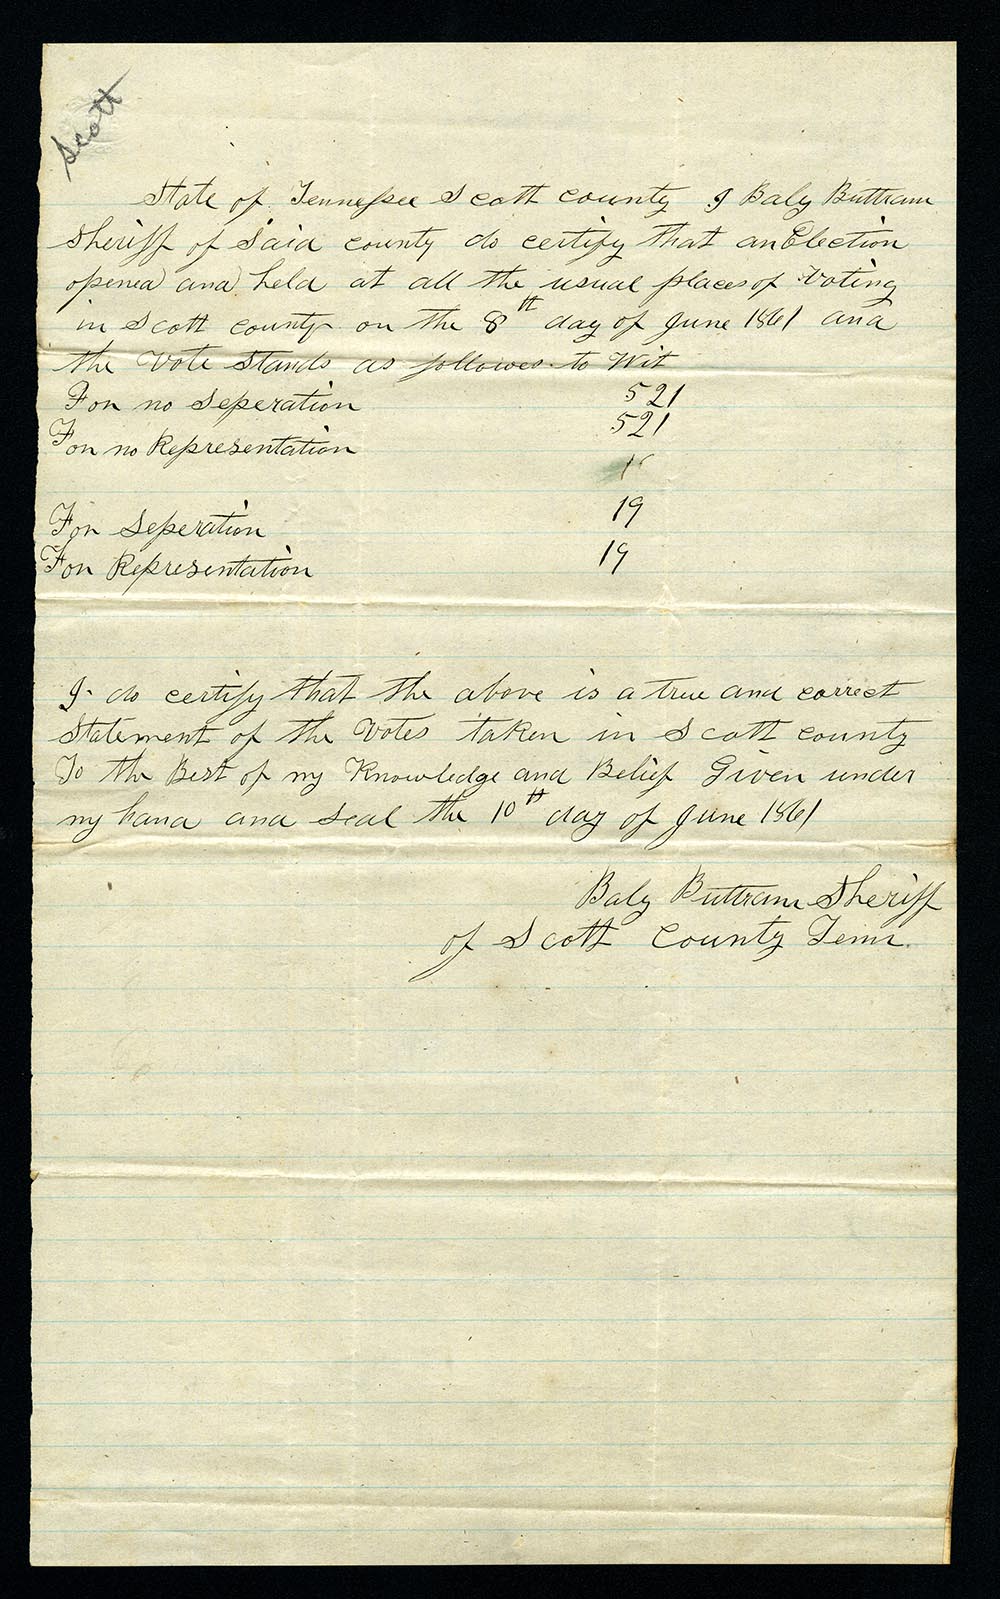 Scott
State of Tennessee Scott county I Baly Buttram
Sheriff of Said county do certify that an Election
opened and held at all the usual places of Voting
in Scott county on the 8th day of June 1861 and
the Vote Stands as followes to Wit
For no Seperation 521
For no Representation 521
For Seperation 19
For Representation 19
I do certify that the above is a true and correct
Statement of the Votes taken in Scott county
To the Best of my Knowledge and Belief Given under
my hand and Seal the 10th day of June 1861
Baly Buttram Sheriff
of Scott County Tenn.